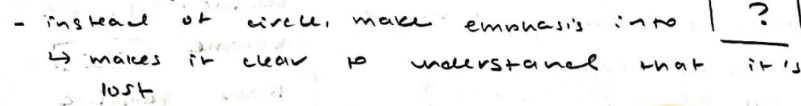 - instead of circle, make emphasis into ?
↳ makes it clear to understand that it's
lost